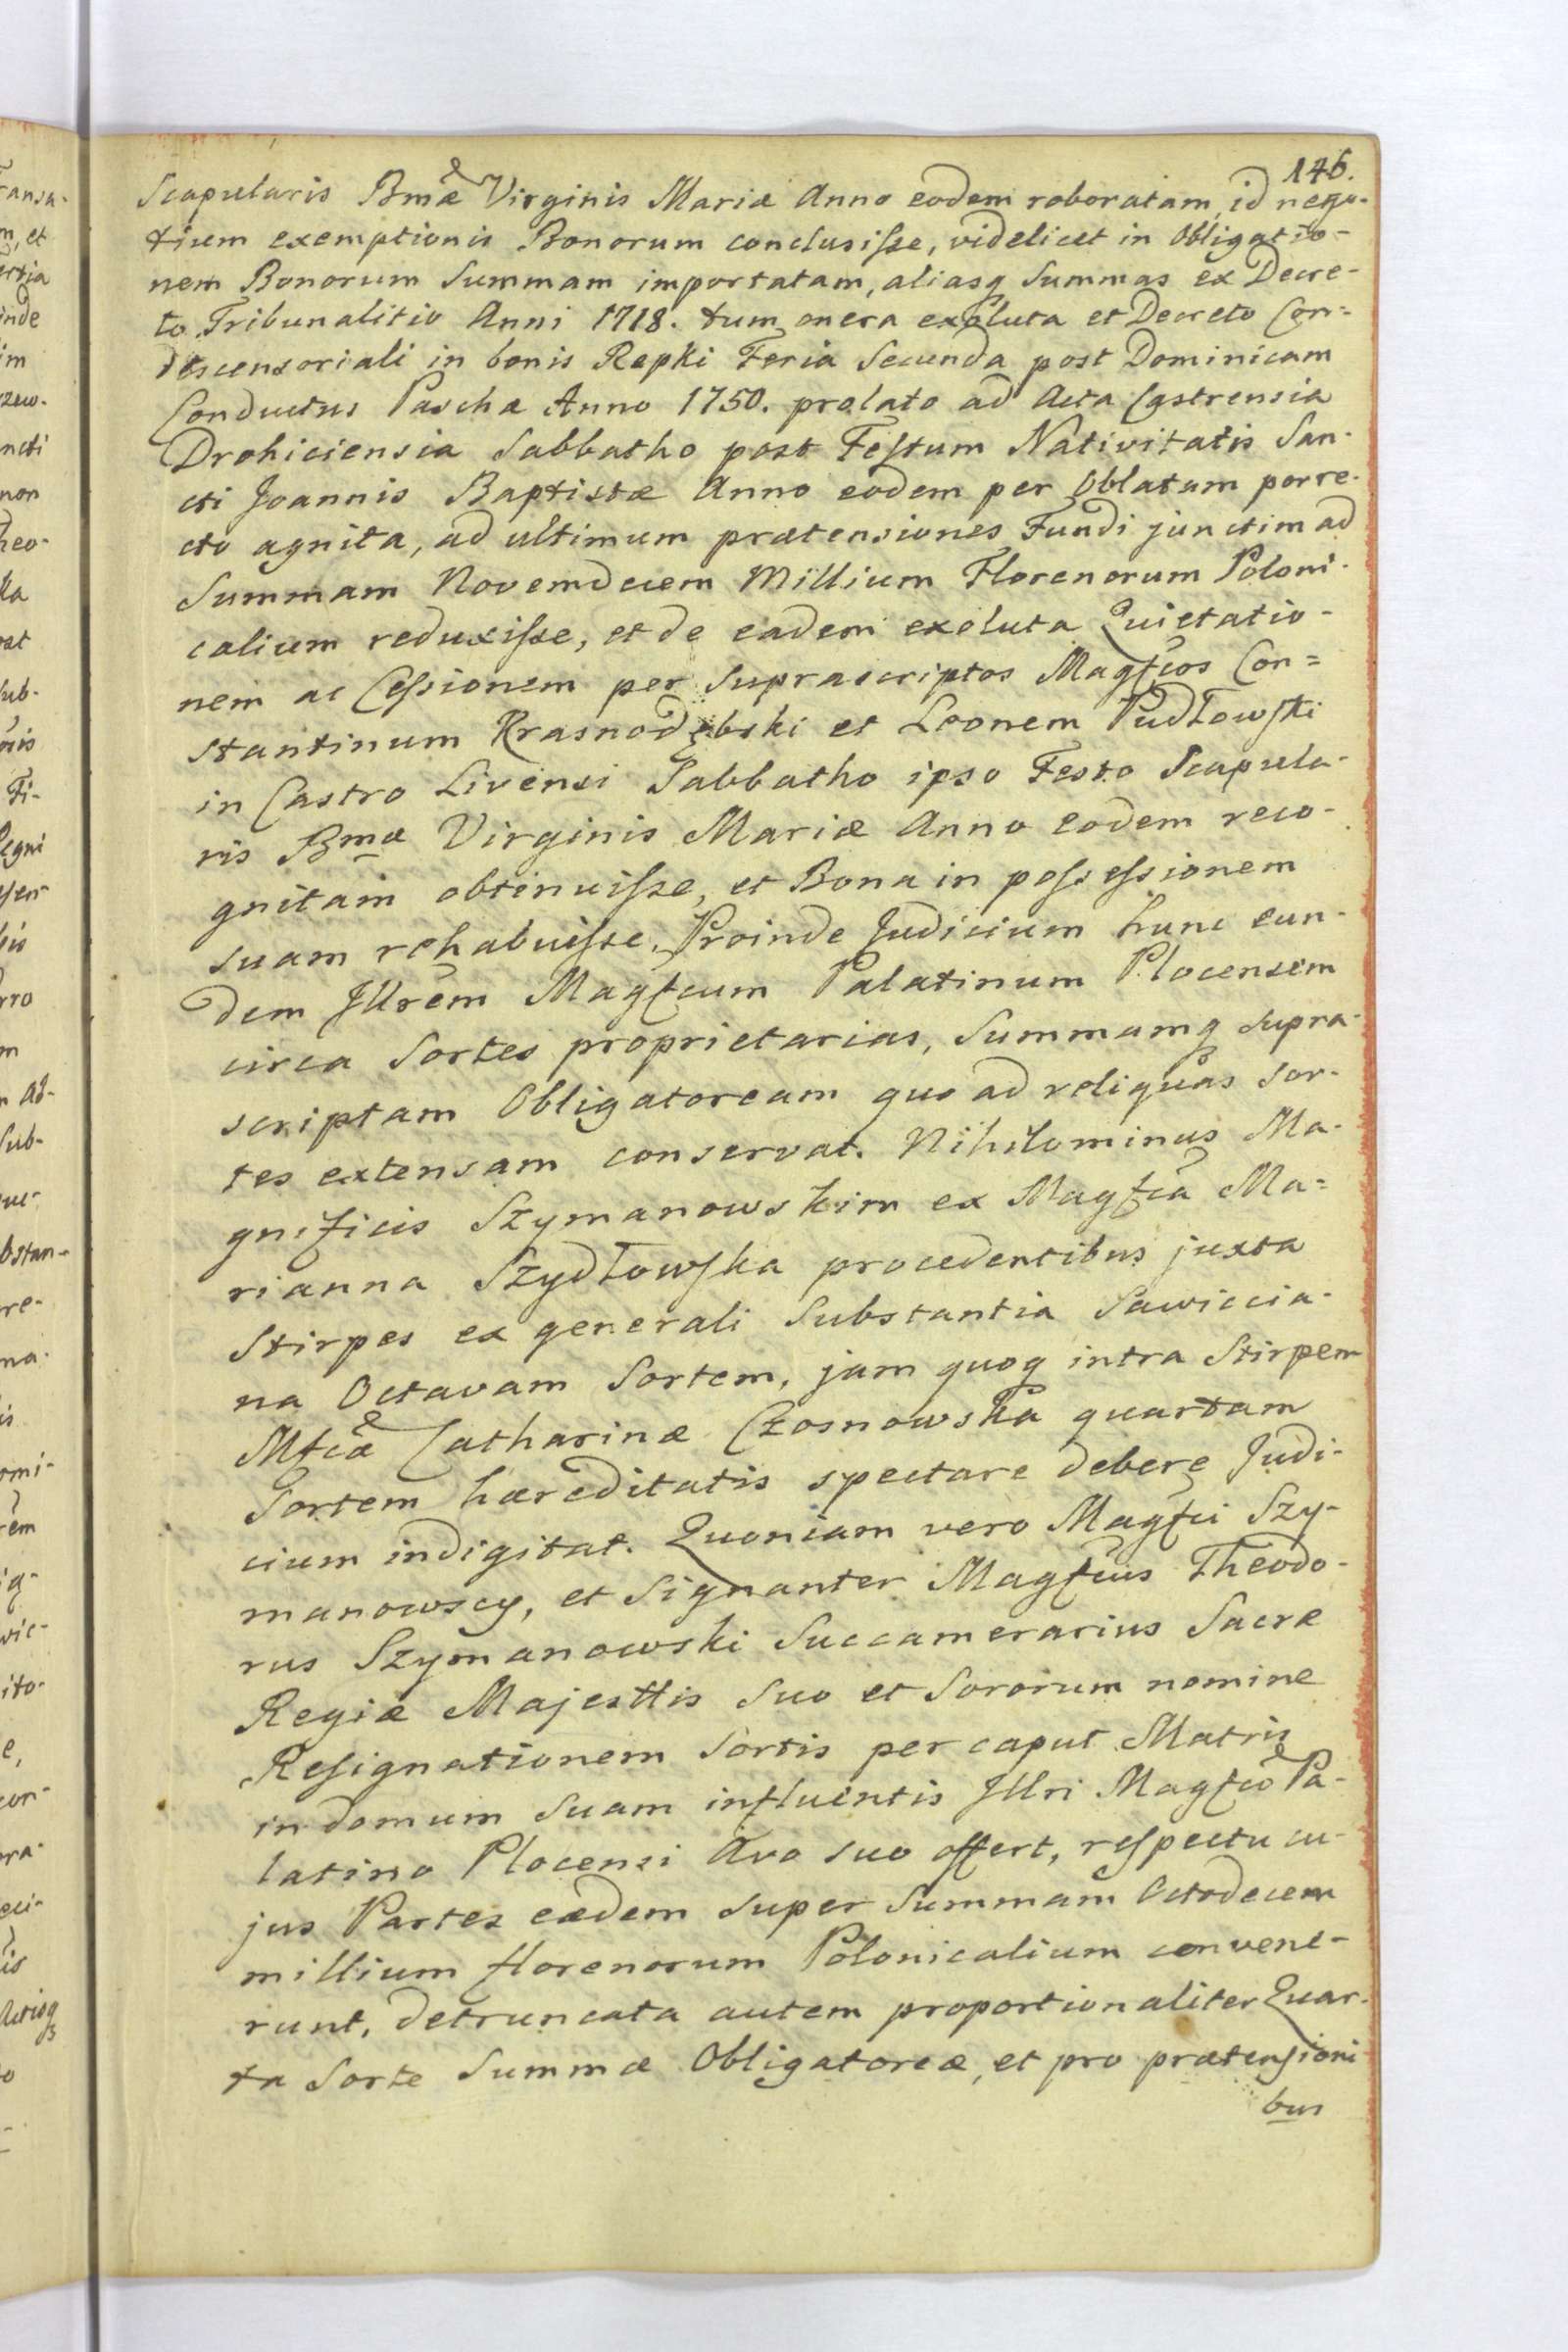 146.
Scapularis Bmæ Virginis Mariæ Anno eodem roboratam, id nego-
tium exemptionis Bonorum conclusiſse, videlicet in Obligatio-
nem Bonorum Summam importatam, aliasq Summas ex Decre-
to Tribunalitio Anni 1718. tum onera exoluta et Decreto Con=
descensoriali in bonis Repki Feria Secunda post Dominicam
Conductus Paschæ Anno 1750. prolato ad Acta Castrensia
Drohiciensia Sabbatho post Feſtum Nativitatis San-
cti Joannis Baptistæ Anno eodem per Oblatam porre-
cto agnita, ad ultimum prætensiones Fundi junctim ad
Summam Novemdecem Millium Florenorum Poloni-
calium reduxiſse, et de eadem exoluta Quietatio-
nem ac Ceſsionem per suprascriptos Magſcos Con=
stantinum Krasnodębski et Leonem Pudłowſki
in Castro Livensi Sabbatho ipso Festo Scapula-
ris Bmæ Virginis Mariæ Anno eodem reco-
gnitam obtinuiſse, et Bona in poſseſsionem
suam rehabuiſse. Proinde Judicium hunc eun-
dem Jllrem Magſcum Palatinum Plocensem
circa Sortes proprietarias, Summamq supra-
scriptam Obligatoream quo ad reliquas Sor-
tes extensam conservat. Nihilominus Ma-
gnificis Szymanowskim ex Magſca Ma=
rianna Szydłowſka procedentibus juxta
Stirpes ex generali Substantia Sawiccia-
na Octavam Sortem, jam quoq intra Stirpem
Mſcæ Catharinæ Czosnowska quartam
Sortem hæreditatis spectare debere Judi-
cium indigitat. Quoniam vero Magſci Szy-
manowscy, et Signanter Magſcus Theodo-
rus Szymanowski Succamerarius Sacræ
Regiæ Majesttis suo et Sororum nomine
Reſignationem Sortis per caput Matris
in domum suam influentis Jllri Magſco Pa-
latino Plocensi Avo suo offert, reſpectu cu-
jus Partes eædem super Summam Octodecem
millium florenorum Polonicalium convene-
runt, detruncata autem proportionaliter Quar-
ta Sorte Summæ Obligatoreæ, et pro prætenſioni
bus